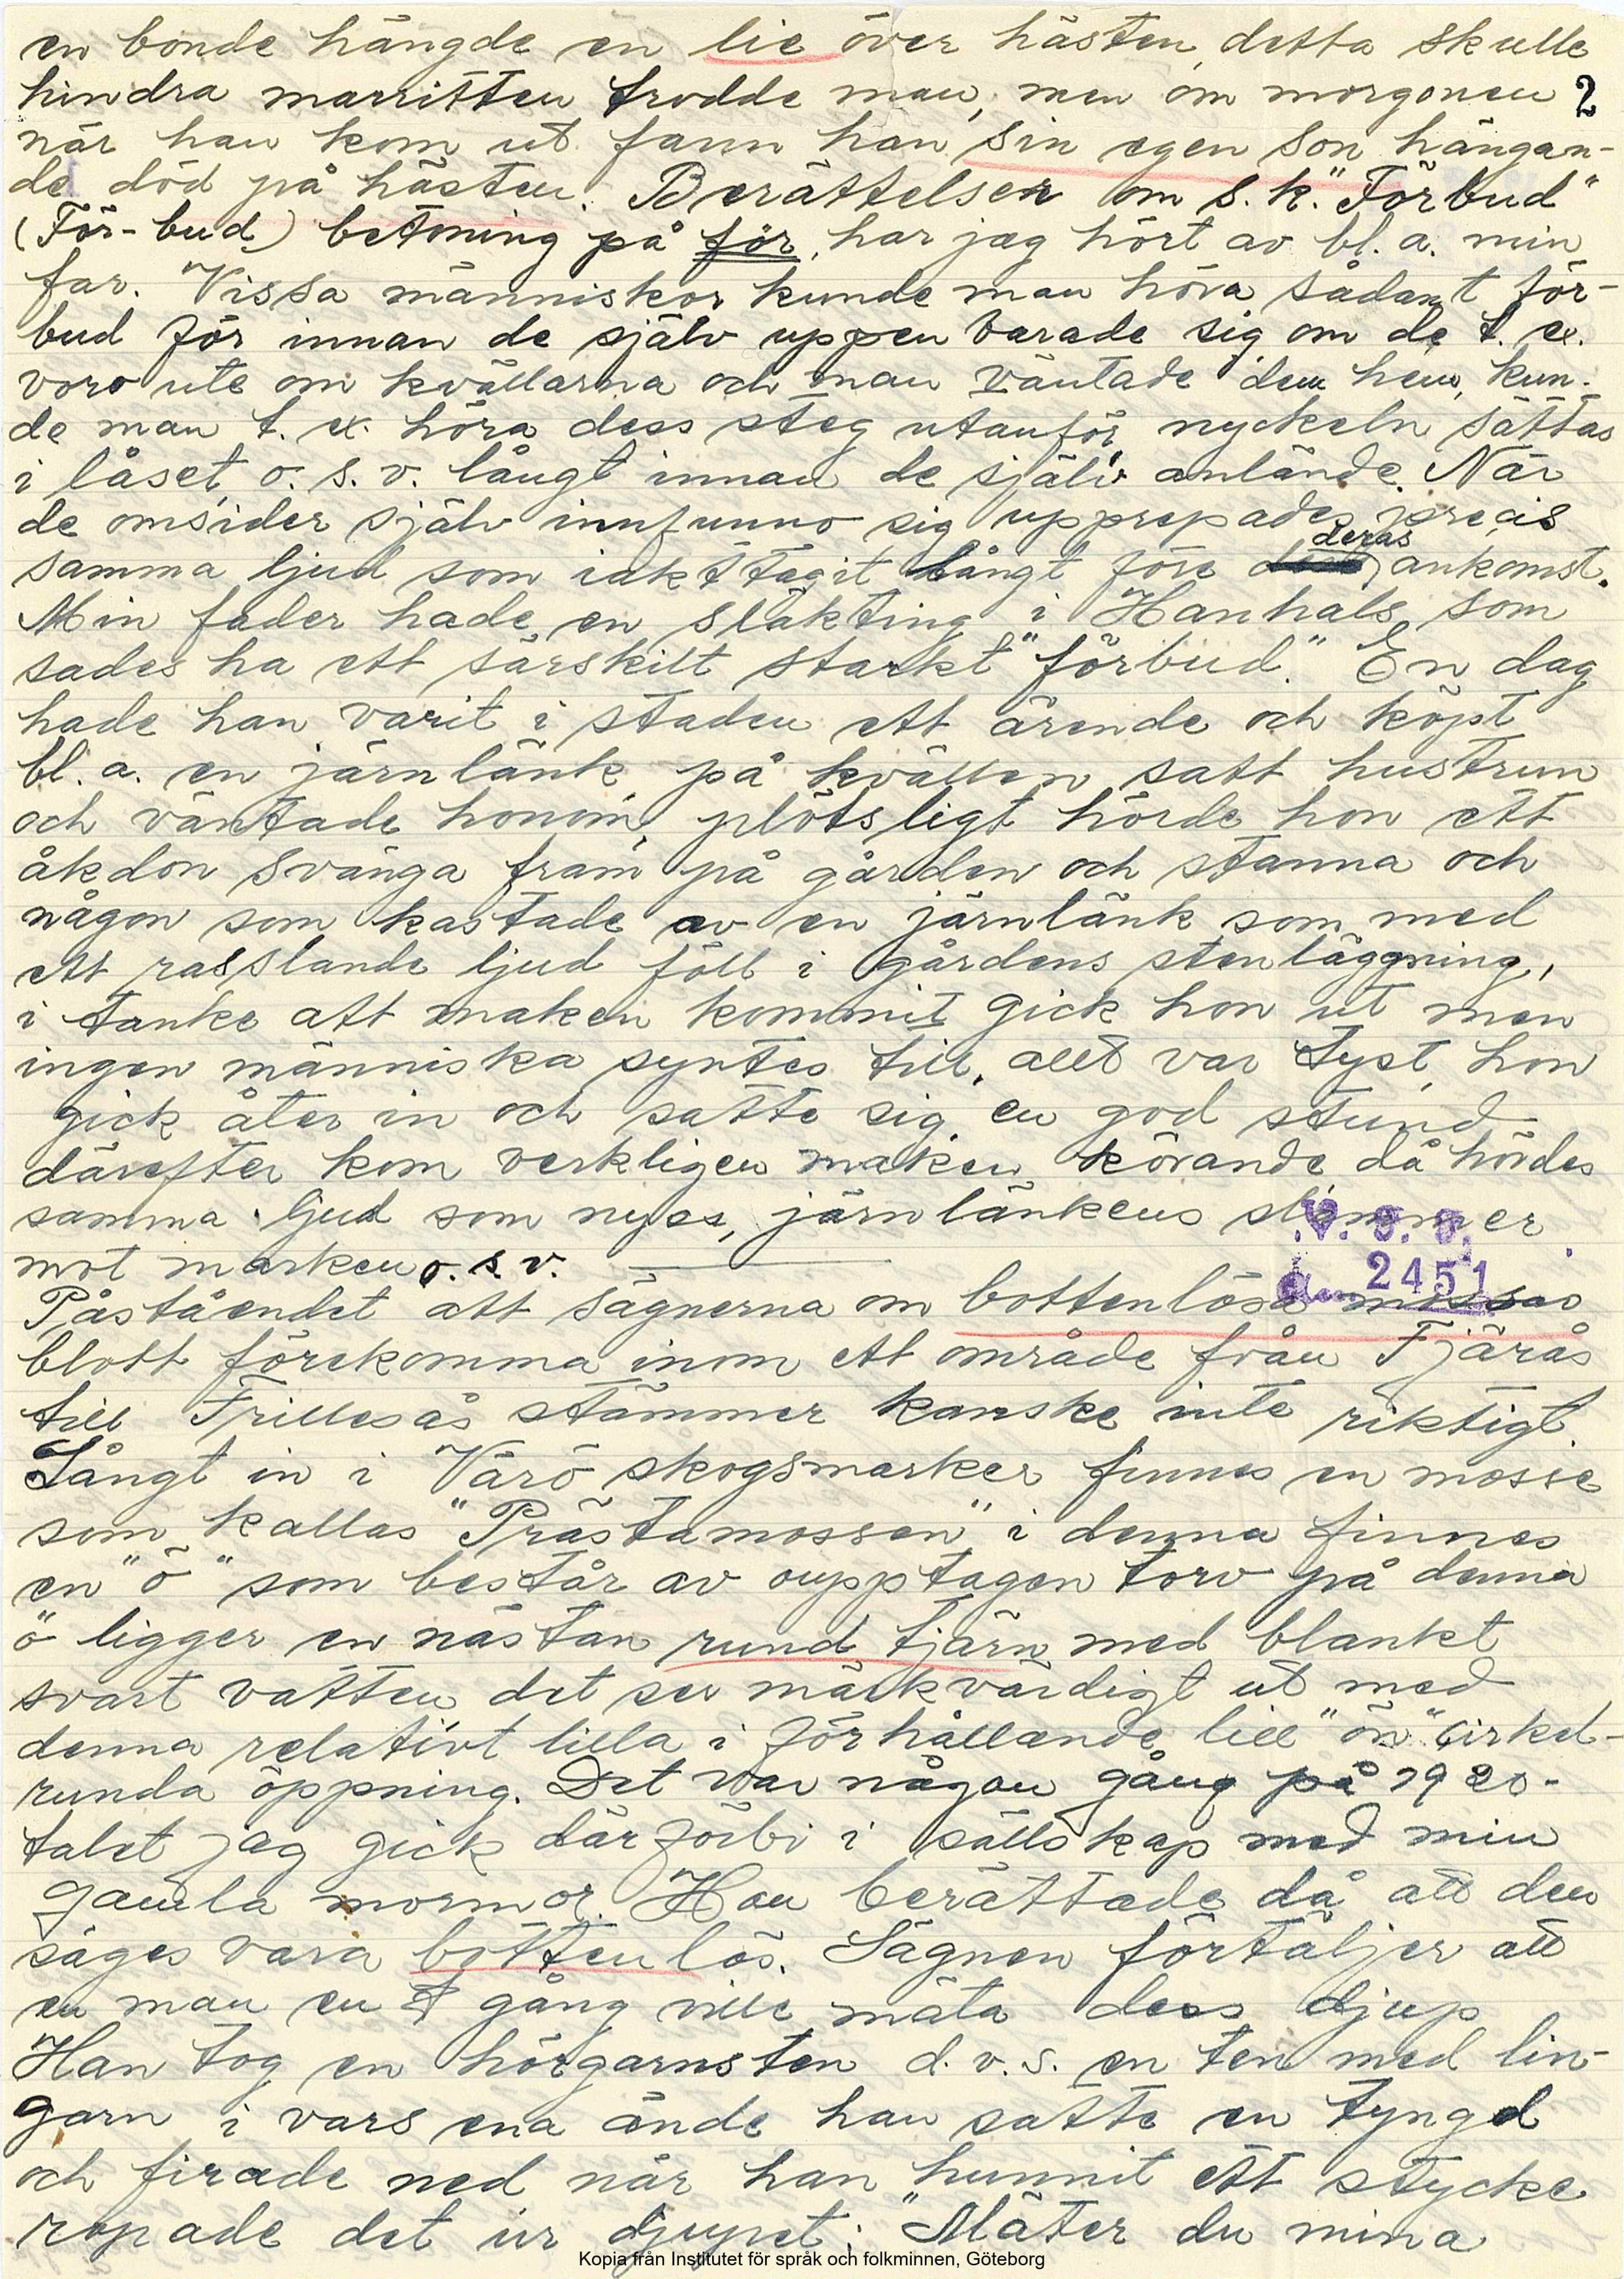 en bonde hängde en lie över hästen, detta skulle
hindra marritten trodde man, men om morgonen 2
när han kom ut fann han sin egen son hängan-
de död på hästen. Berättelser om s.k. "Förbud"
(För-bud) betoning på för, har jag hört av bl. a. min
far. Vissa människor kunde man höra sådant för-
bud för innan de själv uppenbarade sig om de t. ex.
voro ute om kvällarna och man väntade dem hem, kun-
de man t. ex. höra dess steg utanför, nyckeln sättas
i låset, o. s. v. långt innan de själv anlände. När
de omsider själv innfunno sig upprepades precis
samma ljud som iakttagit långt före deras ankomst.
Min fader hade en släkting i Hanhals som
sades ha ett särskilt starkt "förbud." En dag
hade han varit i staden ett ärende och köpt
bl. a. en järnlänk, på kvällen satt hustrun
och väntade honom, plötsligt hörde hon ett
åkdon svänga fram på gården och stanna och
någon som kastade av en järnlänk som med
ett rasslande ljud föll i gårdens stenläggning,
i tanke att maken kommit gick hon ut men
ingen människa syntes till, allt var tyst, hon
gick åter in och satte sig, en god stund
därefter kom verkligen maken körande då hördes
samma ljud som nyss, järnlänkens slammer
mot marken o. s. v.
V. F. F.
2451
Påståendet att sägnerna om bottenlösa mossar
blott förekomma inom ett område från Fjärås
till Frillesås stämmer kanske inte riktigt.
Långt in i Värö skogsmarker finnes en mosse
som kallas "Prästamossen" i denna finnes
en "ö" som består av oupptagen torv på denna
ö ligger en nästan rund tjärn med blankt
svart vatten det ser märkvärdigt ut med
denna relativt lilla i förhållande till "ön" cirkel-
runda öppning. Det var någon gång på 1920-
talet jag gick där förbi i sällskap med min
gamla mormor. Hon berättade då att den
säges vara bottenlös. Sägnen förtäljer att
en man en gång ville mäta dess djup
Han tog en hörgarnsten d. v. s. en ten med lin-
garn i vars ena ände han satte en tyngd
och firade ned när han hunnit ett stycke
ropade det ur djupet: "Mäter du mina
Kopia från Institutet för språk och folkminnen, Göteborg